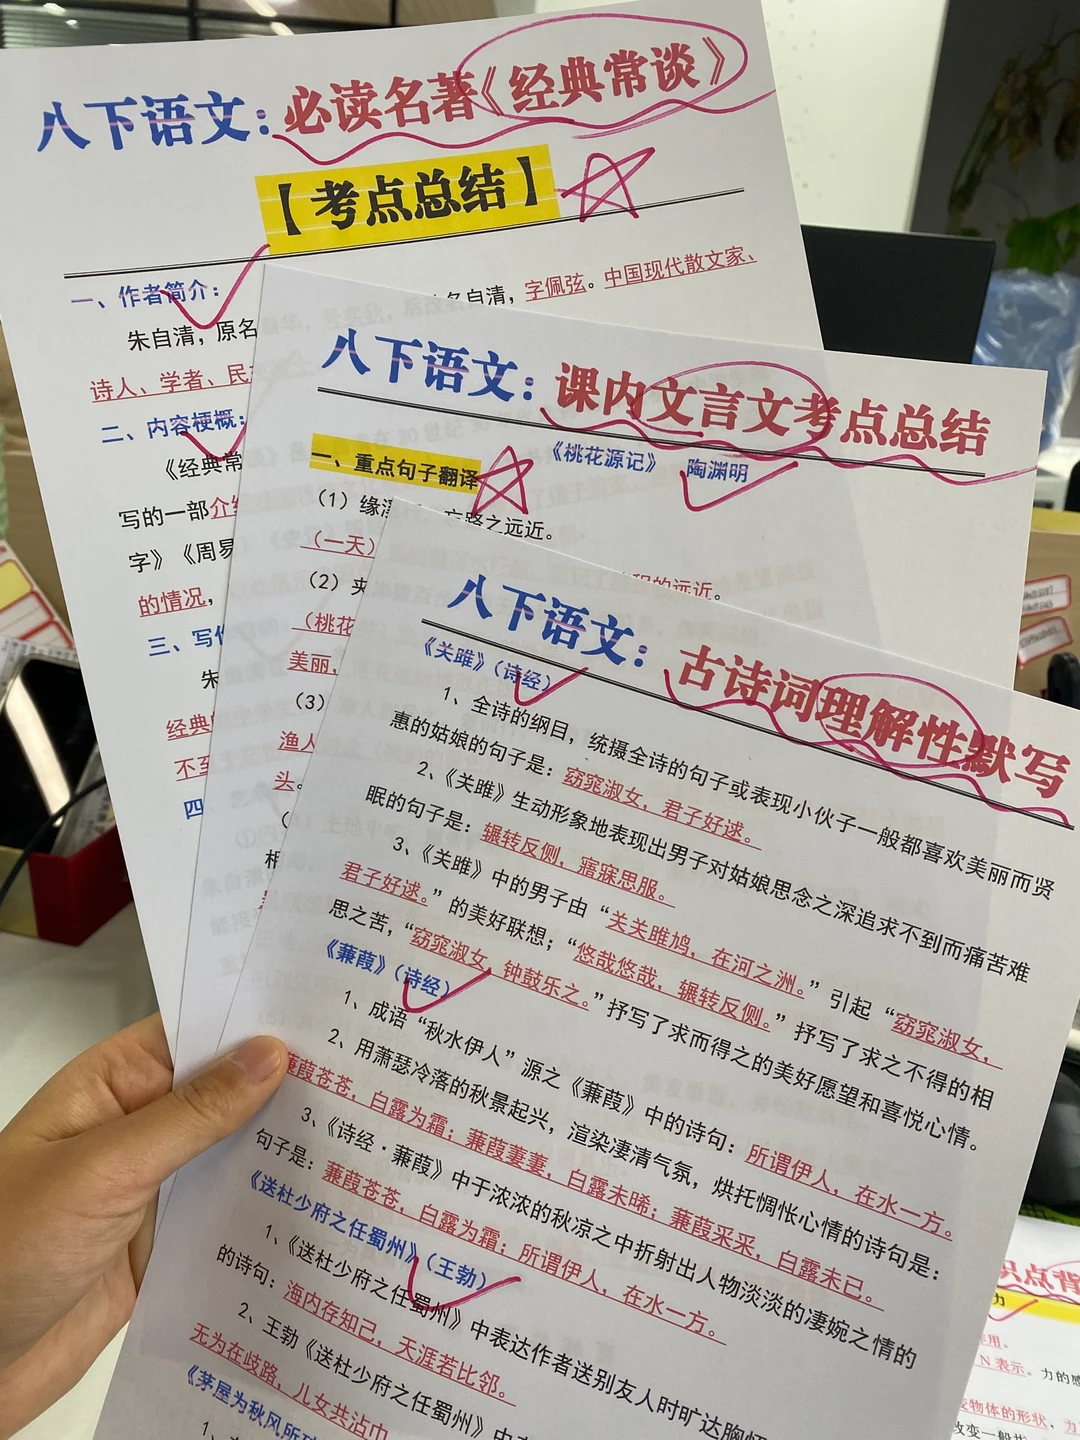 八下语文：必读名著《经典常谈》
【考点总结】
一、作者简介：
朱自清，原名
名自清，字佩弦。中国现代散文家、
诗人、学者、民
二、内容梗概：
《经典常
写的一部介绍
字》《周易
的情况，
三、写作
朱
经典
不至
四
八下语文：课内文言文考点总结
《桃花源记》 陶渊明
一、重点句子翻译
（1）缘溪
忘路之远近。
（一天）
程的远近。
（2）夹
（桃花
美丽，
（3）
渔人
头。
八下语文：古诗词理解性默写
《关雎》（诗经）
1、全诗的纲目，统摄全诗的句子或表现小伙子一般都喜欢美丽而贤
惠的姑娘的句子是：窈窕淑女，君子好逑。
2、《关雎》生动形象地表现出男子对姑娘思念之深追求不到而痛苦难
眠的句子是：辗转反侧，寤寐思服。
3、《关雎》中的男子由“关关雎鸠，在河之洲。”引起“窈窕淑女，
君子好逑。”的美好联想；“悠哉悠哉，辗转反侧。”抒写了求之不得的相
思之苦，“窈窕淑女，钟鼓乐之。”抒写了求而得之的美好愿望和喜悦心情。
《蒹葭》（诗经）
1、成语“秋水伊人”源之《蒹葭》中的诗句：所谓伊人，在水一方。
2、用萧瑟冷落的秋景起兴，渲染凄清气氛，烘托惆怅心情的诗句是：
蒹葭苍苍，白露为霜；蒹葭萋萋，白露未晞；蒹葭采采，白露未已。
3、《诗经·蒹葭》中于浓浓的秋凉之中折射出人物淡淡的凄婉之情的
句子是：蒹葭苍苍，白露为霜；所谓伊人，在水一方。
《送杜少府之任蜀州》（王勃）
1、《送杜少府之任蜀州》中表达作者送别友人时旷达胸怀
的诗句：海内存知己，天涯若比邻。
2、王勃《送杜少府之任蜀州》中
无为在歧路，儿女共沾巾
《茅屋为秋风所破
1、
识点背
力
作用。
N 表示。力的感
变物体的形状，力
改变一般指